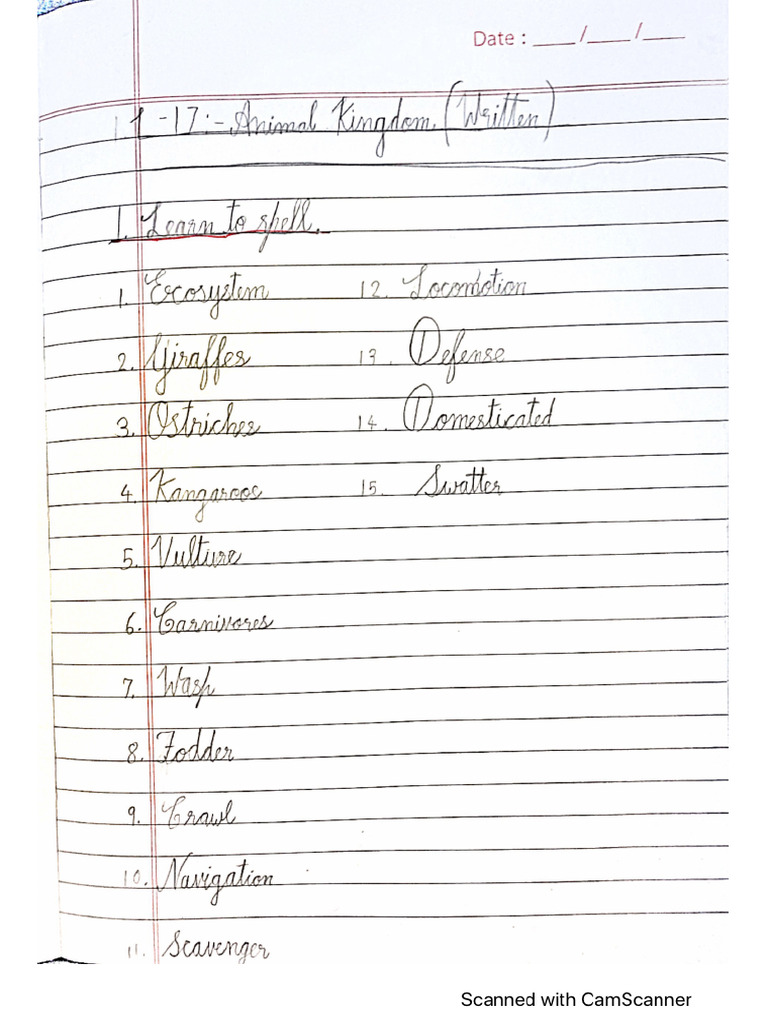 Date : ___/___/___
1-17:- Animal Kingdom. (Written)
1. Learn to spell.
1. Ecosystem
2. Giraffes
3. Ostriches
4. Kangaroos
5. Vulture
6. Carnivores
7. Wasp
8. Fodder
9. Crawl
10. Navigation
11. Scavenger
12. Locomotion
13. Defense
14. Domesticated
15. Swatter
Scanned with CamScanner